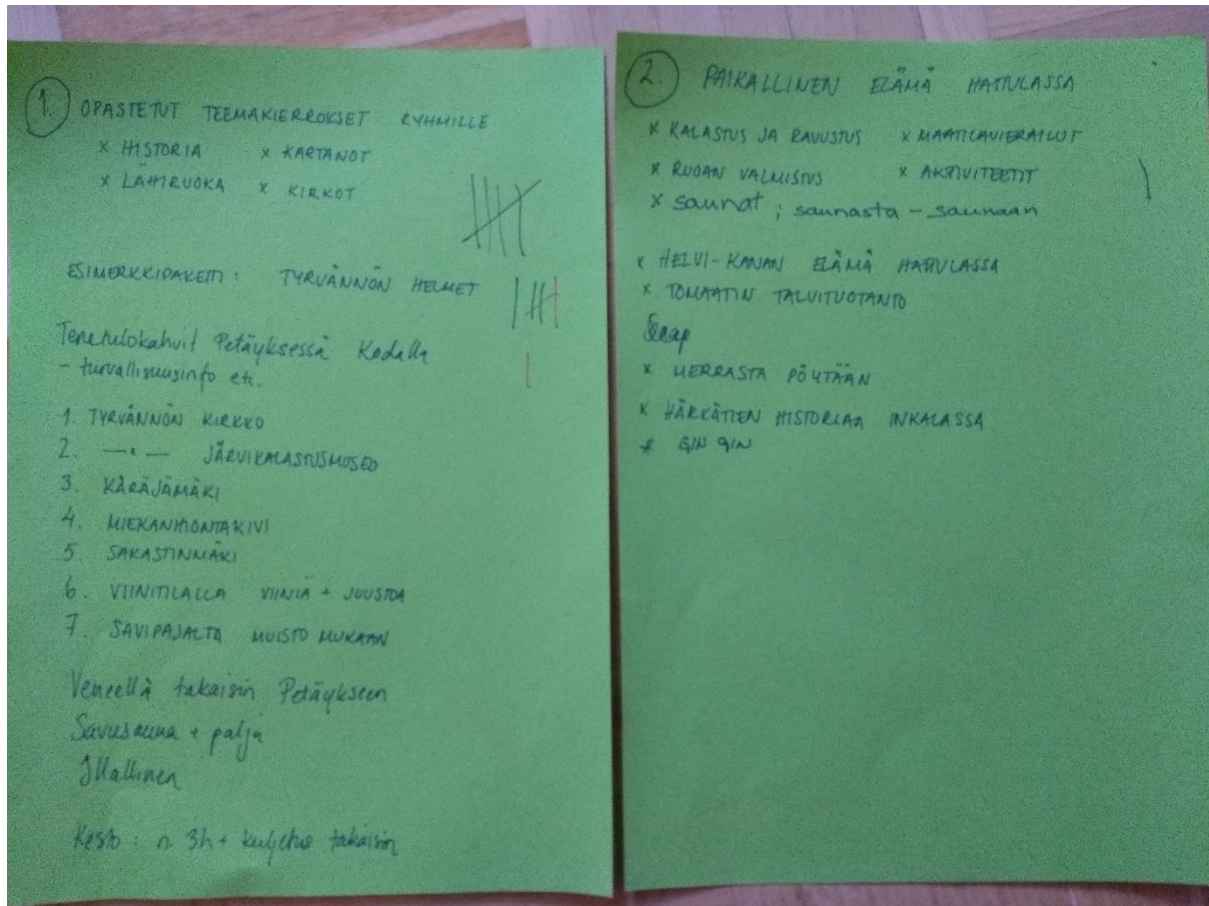 1. OPASTETUT TEEMAKIERROKSET RYHMILLE
x HISTORIA x KARTANOT
x LÄHIRUOKA x KIRKOT
ESIMERKKIPAKETTI : TYRVÄNNÖN HELMET
Tervetulokahvit Petäyksessä Kodalla
- turvallisuusinfo etc.
1. TYRVÄNNÖN KIRKKO
2. —"— JÄRVIKALASTUSMUSEO
3. KÄRÄJÄMÄKI
4. MIEKANHIONTAKIVI
5. SAKASTINMÄKI
6. VIINITILALLA VIINIÄ + JUUSTOA
7. SAVIPAJALTA MUISTO MUKAAN
Veneellä takaisin Petäykseen
Savusauna + palju
Illallinen
Kesto : n 3h + kuljetus takaisin
2. PAIKALLINEN ELÄMÄ HATTULASSA
x KALASTUS JA RAVUSTUS x MAATILAVIERAILUT
x RUOAN VALMISTUS x AKTIVITEETIT
x saunat ; saunasta - saunaan
x HELVI-KANAN ELÄMÄ HATTULASSA
x TOMAATIN TALVITUOTANTO
x MERRASTA PÖYTÄÄN
x HÄRKÄTIEN HISTORIAA INKALASSA
x GIN GIN